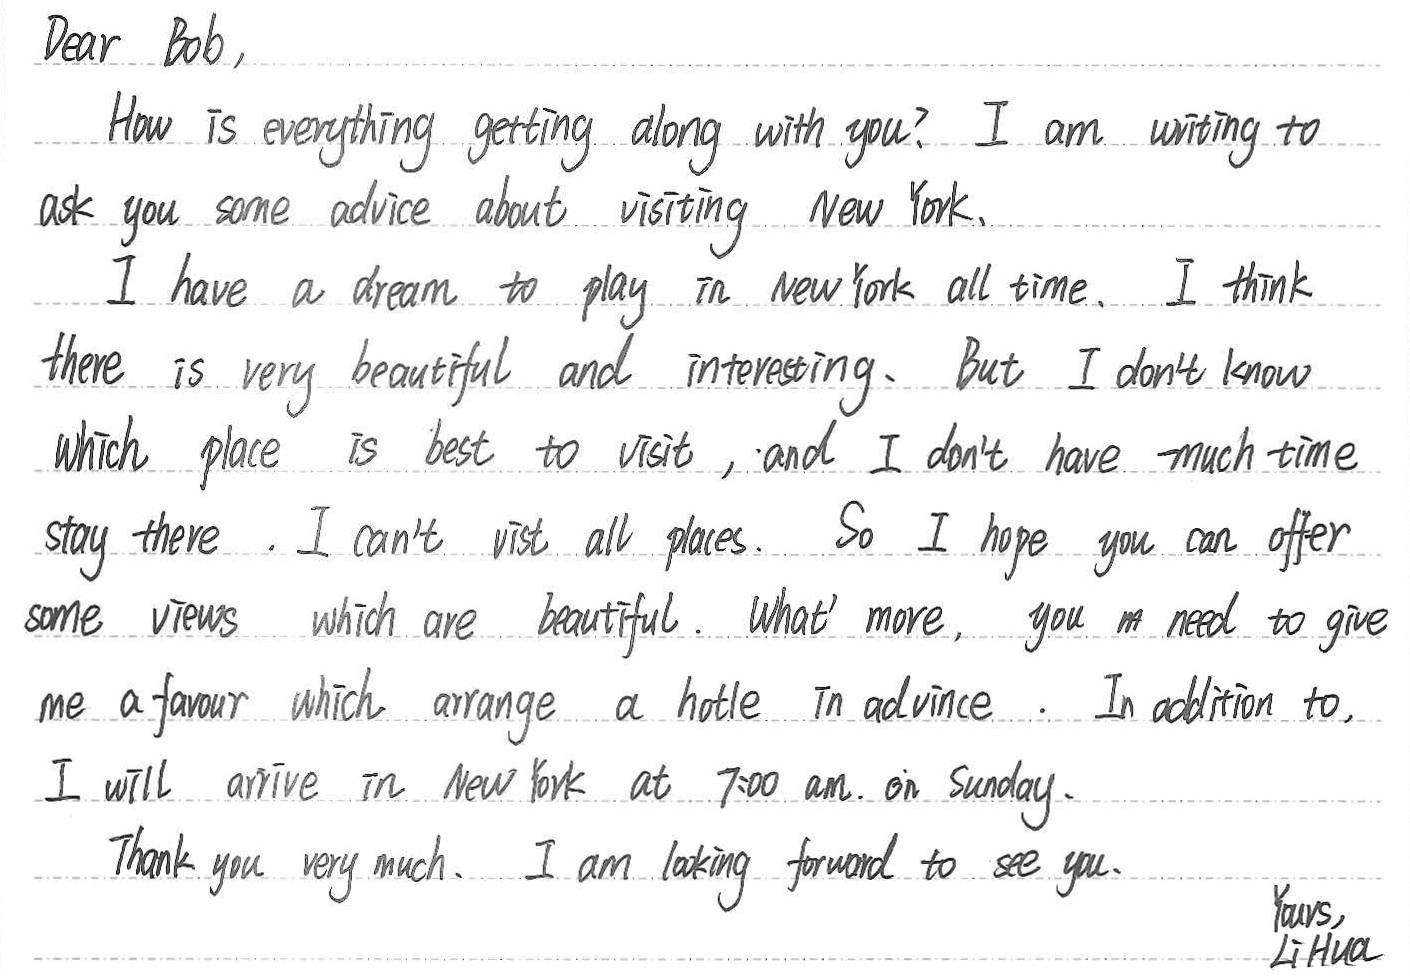 Dear Bob,
How is everything getting along with you? I am writing to
ask you some advice about visiting New York.
I have a dream to play in New York all time. I think
there is very beautiful and interesting. But I don't know
which place is best to visit, and I don't have much time
stay there. I can't vist all places. So I hope you can offer
some views which are beautiful. What' more, you need to give
me a favour which arrange a hotle in advince. In addition to,
I will arrive in New York at 7:00 am. on Sunday.
Thank you very much. I am looking forward to see you.
Yours,
Li Hua